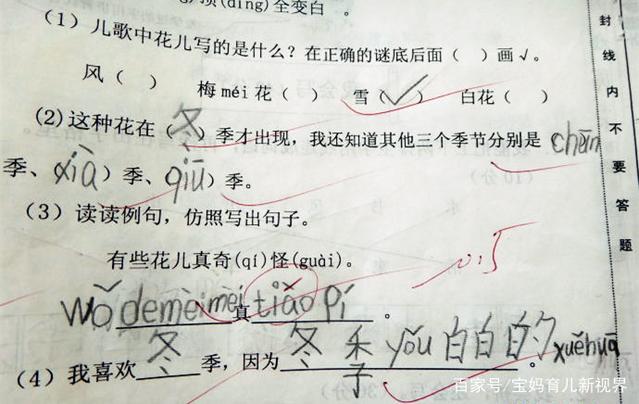 顶(dǐng)全变白。
(1) 儿歌中花儿写的是什么？在正确的谜底后面（ ）画√。
风（ ） 梅méi花（ ） 雪（√） 白花（ ）
(2)这种花在（冬）季才出现，我还知道其他三个季节分别是 chūn
季、（xià）季、（qiū）季。
(3) 读读例句，仿照写出句子。
有些花儿真奇(qí)怪(guài)。
wǒ de mèi mèi 真 tiáo pí 。
0.5
(4) 我喜欢 冬 季，因为 冬季 yǒu 白白的 xuě huā 。
封线内不要答题
百家号/宝妈育儿新视界